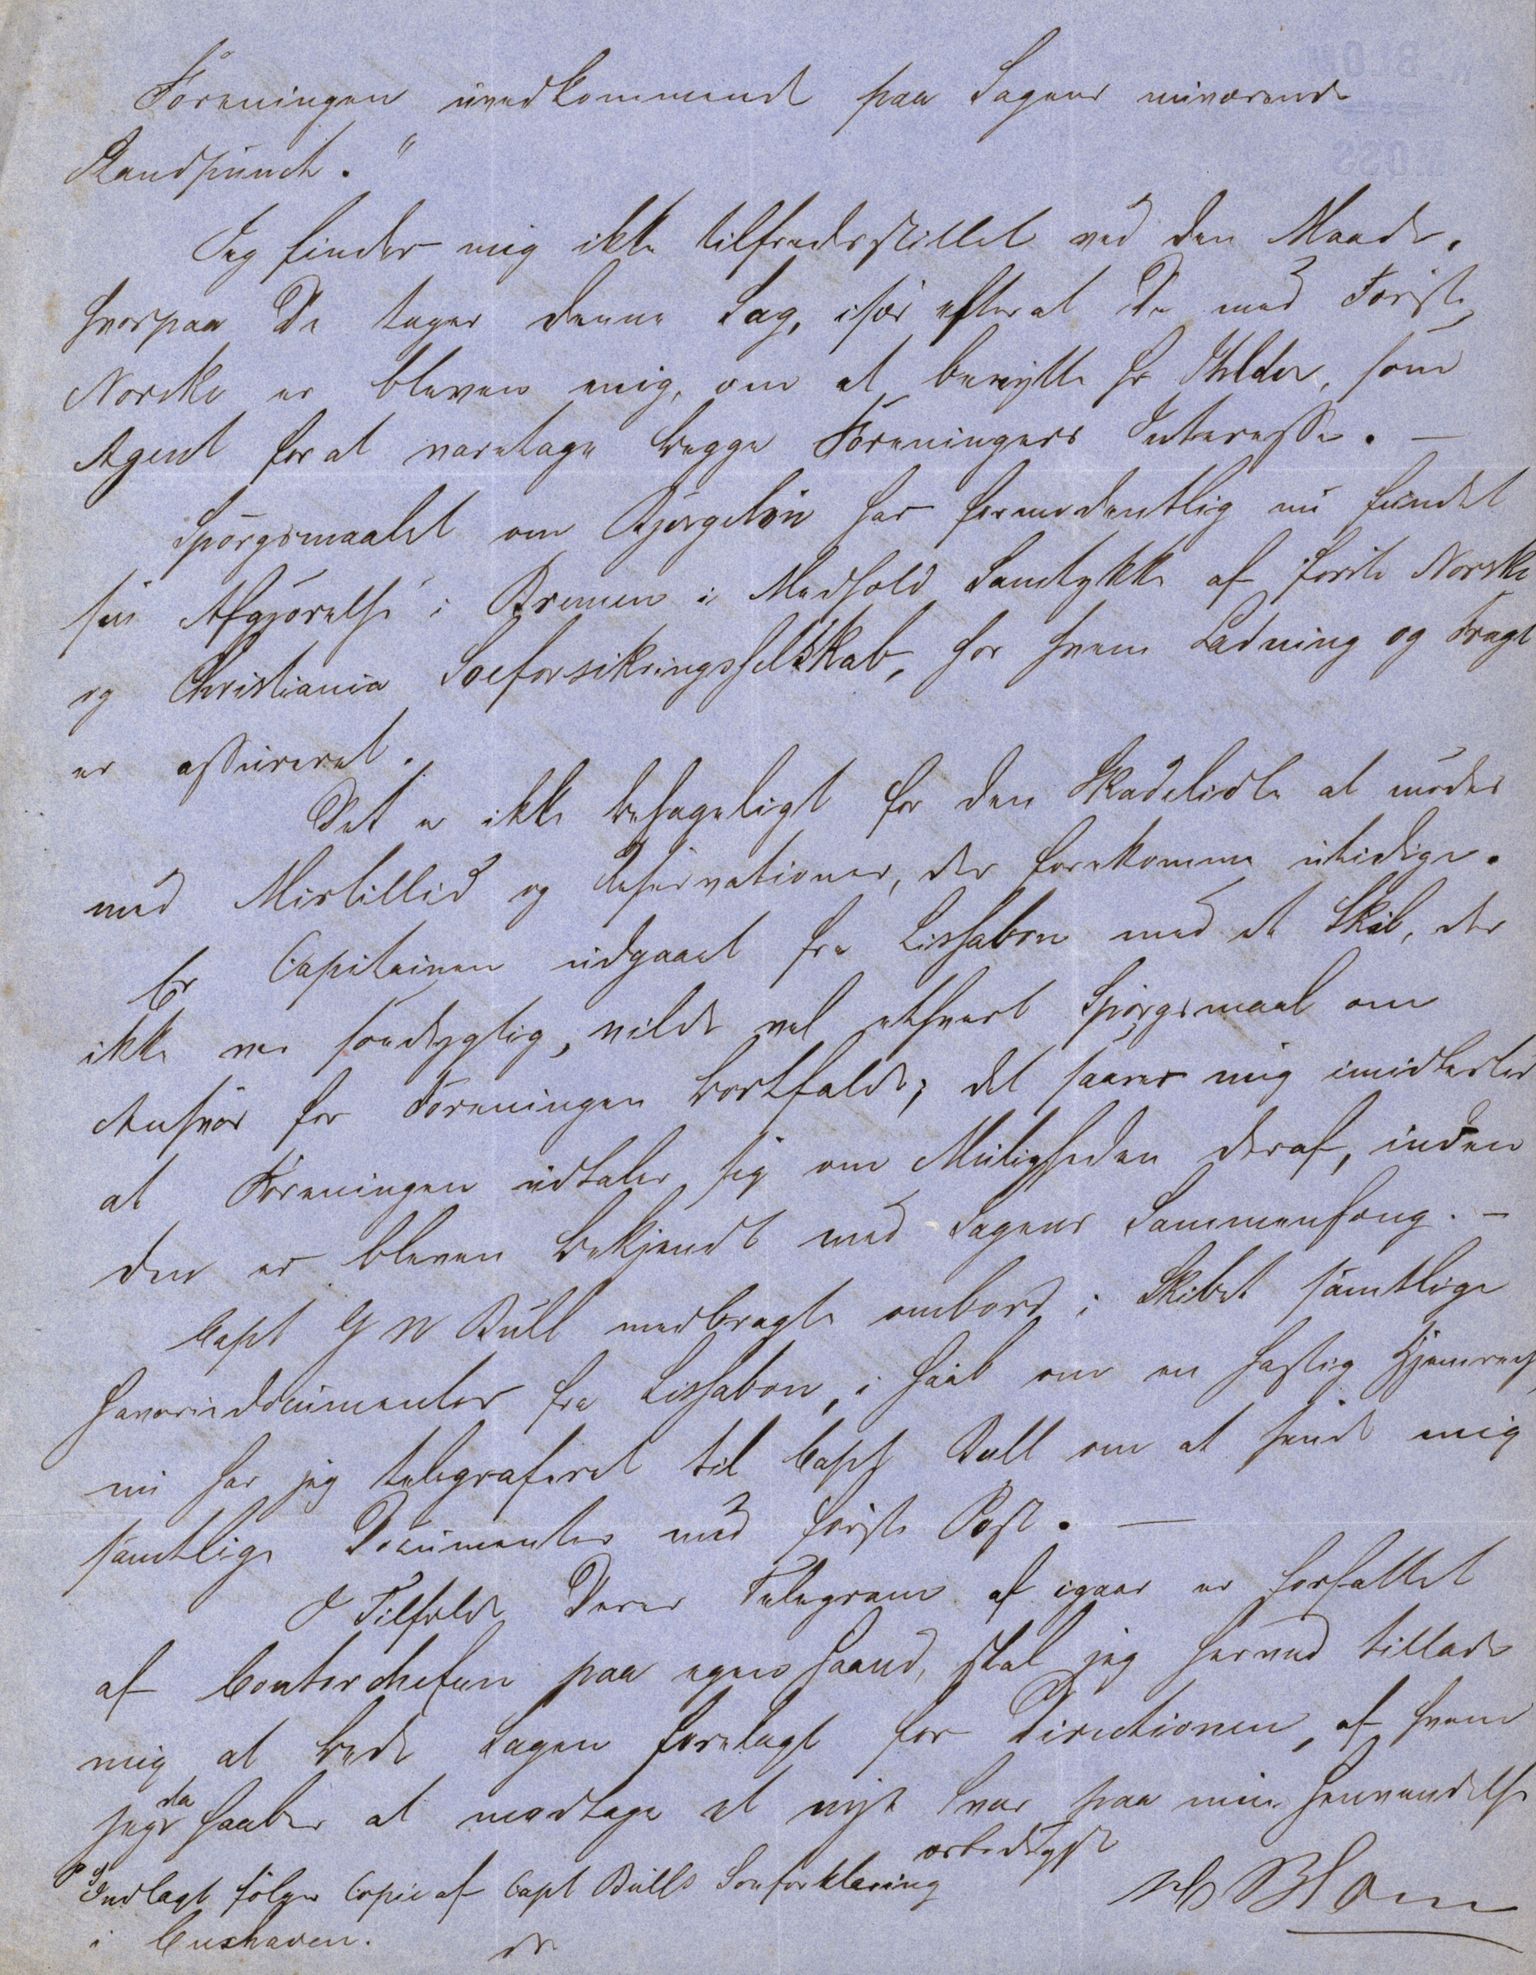 Foreningen uvedkommende paa Sagens nuværende
Standpunct."
Jeg finder mig ikke tilfredsstillet ved den Maade,
hvorpaa De tager denne Sag, især efterat De med Første
Norske er bleven enig, om at benytte Hr Ihlder, som
Agent for at varetage begge Foreningers Interesse. —
Spörgsmaalet om Bjergelön har formodentlig nu fundet
sin Afgjörelse i Bremen i Medhold Samtykke af förste Norske
og Christiania Søeforsikringsselskab, hos hvem Ladning og Fragt
er assureret.
Det er ikke behageligt for den Skadelidte at mödes
med Mistillid og Reservationer, der forekomme utidige.
Er Capitainen udgaaet fra Lissabon med et Skib, der
ikke var södygtig, vilde vel ethvert Spörgsmaal om
Ansvar for Foreningen bortfalde; det saarer mig imidlertid
at Foreningen udtaler sig om Muligheden deraf, inden
den er bleven bekjendt med Sagens Sammenhæng. —
Capt G N Bull medbragte ombord i Skibet samtlige
Havariedocumenter fra Lissabon, i Haab om en hastig Hjemreise
nu har jeg telegraferet til Capt Bull om at sende mig
samtlige Documenter med förste Post. —
I Tilfælde Deres Telegram af igaar er forfattet
af Contorchefen paa egen Haand, skal jeg herved tillade
mig at bede Sagen forelagt for Directionen, af hvem
jeg da haaber at modtage et nyt Svar paa min Henvendelse
ærbødigst
Indlagt fölger Copie af Capt Bulls Söeforklaring
i Cuxhaven.
Blom
BLOM
MOSS